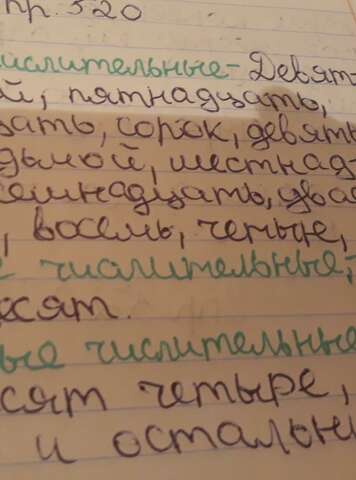 пр. 520
числительные- Девят
ой, пятнадцать,
цать, сорок, девять
дьмой, шестнад
семнадцать, два
, восемь, четыре,
е числительные;
есят.
ые числительные
сят четыре,
и остальн